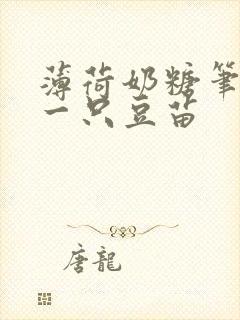 薄荷奶糖筆
一只豆苗
唐龍